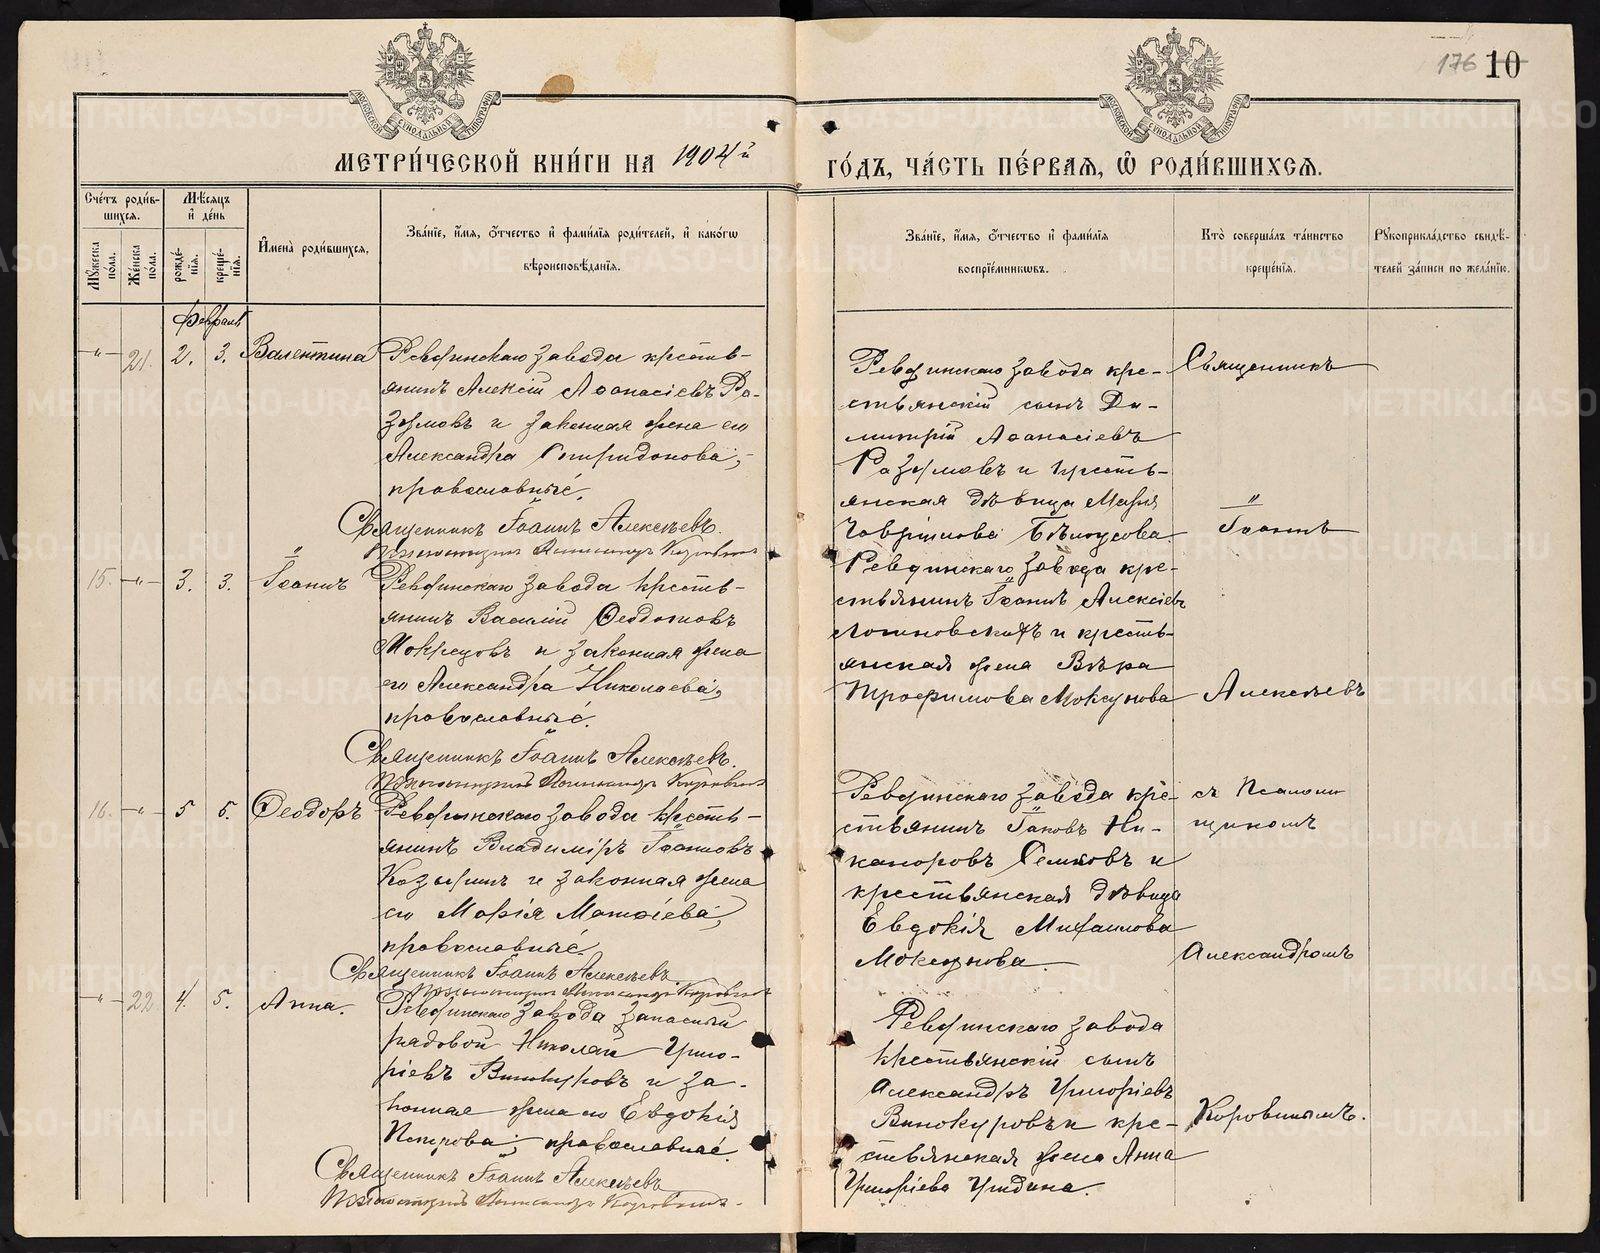 176 10
МЕТРИ́ЧЕСКОЙ КНИ́ГИ НА 1904 й ГО́ДЪ, ЧА́СТЬ ПЕ́РВАЯ, Ѽ РОДИ́ВШИХСЯ.
Сче́тъ роди́в-
шихся.
Мꙋ́жеска
пола.
Же́нска
пола.
Мѣ́сяцъ
и҆ де́нь
рожде́-
нія.
креще́-
нія.
И҆мена̀ роди́вшихся.
Зва́ніе, и҆́мя, ѻ҆́тчество и҆ фами́лія роди́телей, и҆ како́гѡ
вѣроисповѣ́данія.
Зва́ніе, и҆́мя, ѻ҆́тчество и҆ фами́лія
воспріе́мникѡвъ.
Кто̀ соверша́лъ та́инство
креще́нія.
Рꙋкоприкла́дство свидѣ́-
телей за́писи по жела́нію.
Февраль
-"- 21. 2. 3. Валентина
Ревдинскаго завода кресть-
янинъ Алексій Аѳанасіевъ Ра-
зумовъ и законная жена его
Александра Спиридонова,
православные.
Священникъ Іоаннъ Алексѣевъ.
Псаломщикъ Александръ Коровинъ
Ревдинскаго завода кре-
стьянскій сынъ Ди-
митрій Аѳанасіевъ
Разумовъ и кресть-
янская дѣвица Марія
Гавріилова Бѣлоусова
Священникъ
Іоаннъ
15. -"- 3. 3. Іоаннъ
Ревдинскаго завода кресть-
янинъ Василій Ѳеодотовъ
Мокрецовъ и законная жена
его Александра Николаева,
православные.
Священникъ Іоаннъ Алексѣевъ.
Псаломщикъ Александръ Коровинъ
Ревдинскаго завода кре-
стьянинъ Іоаннъ Алексіевъ
Логиновскихъ и кресть-
янская жена Вѣра
Трофимова Мокрунова
Алексѣевъ
16. -"- 5 5. Ѳеодоръ
Ревдинскаго завода кресть-
янинъ Владиміръ Іоанновъ
Козыринъ и законная жена
его Марія Матѳіева,
православные.
Священникъ Іоаннъ Алексѣевъ
Псаломщикъ Александръ Коровинъ
Ревдинскаго завода кре-
стьянинъ Іаковъ Ни-
каноровъ Семковъ и
крестьянская дѣвица
Евдокія Михаилова
съ Псалом-
щикомъ
Александромъ
-"- 22 4. 5. Анна.
Ревдинскаго завода запасный
рядовой Николай Григо-
ріевъ Винокуровъ и за-
конная жена его Евдокія
Петрова, православные.
Священникъ Іоаннъ Алексѣевъ
Псаломщикъ Александръ Коровинъ.
Ревдинскаго завода
крестьянскій сынъ
Александръ Григоріевъ
Винокуровъ и кре-
стьянская жена Анна
Григоріева Гридина.
Коровинымъ.
METRIKI.GASO-URAL.RU